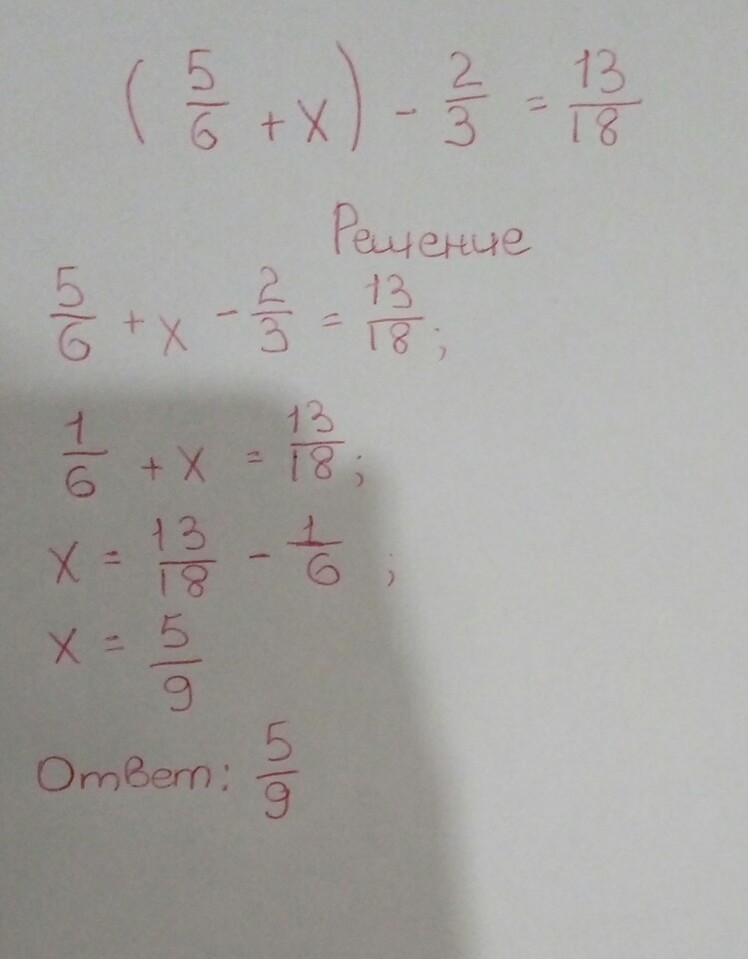 ( 5/6 + x ) - 2/3 = 13/18
Решение
5/6 + x - 2/3 = 13/18;
1/6 + x = 13/18;
x = 13/18 - 1/6 ;
x = 5/9
Ответ: 5/9